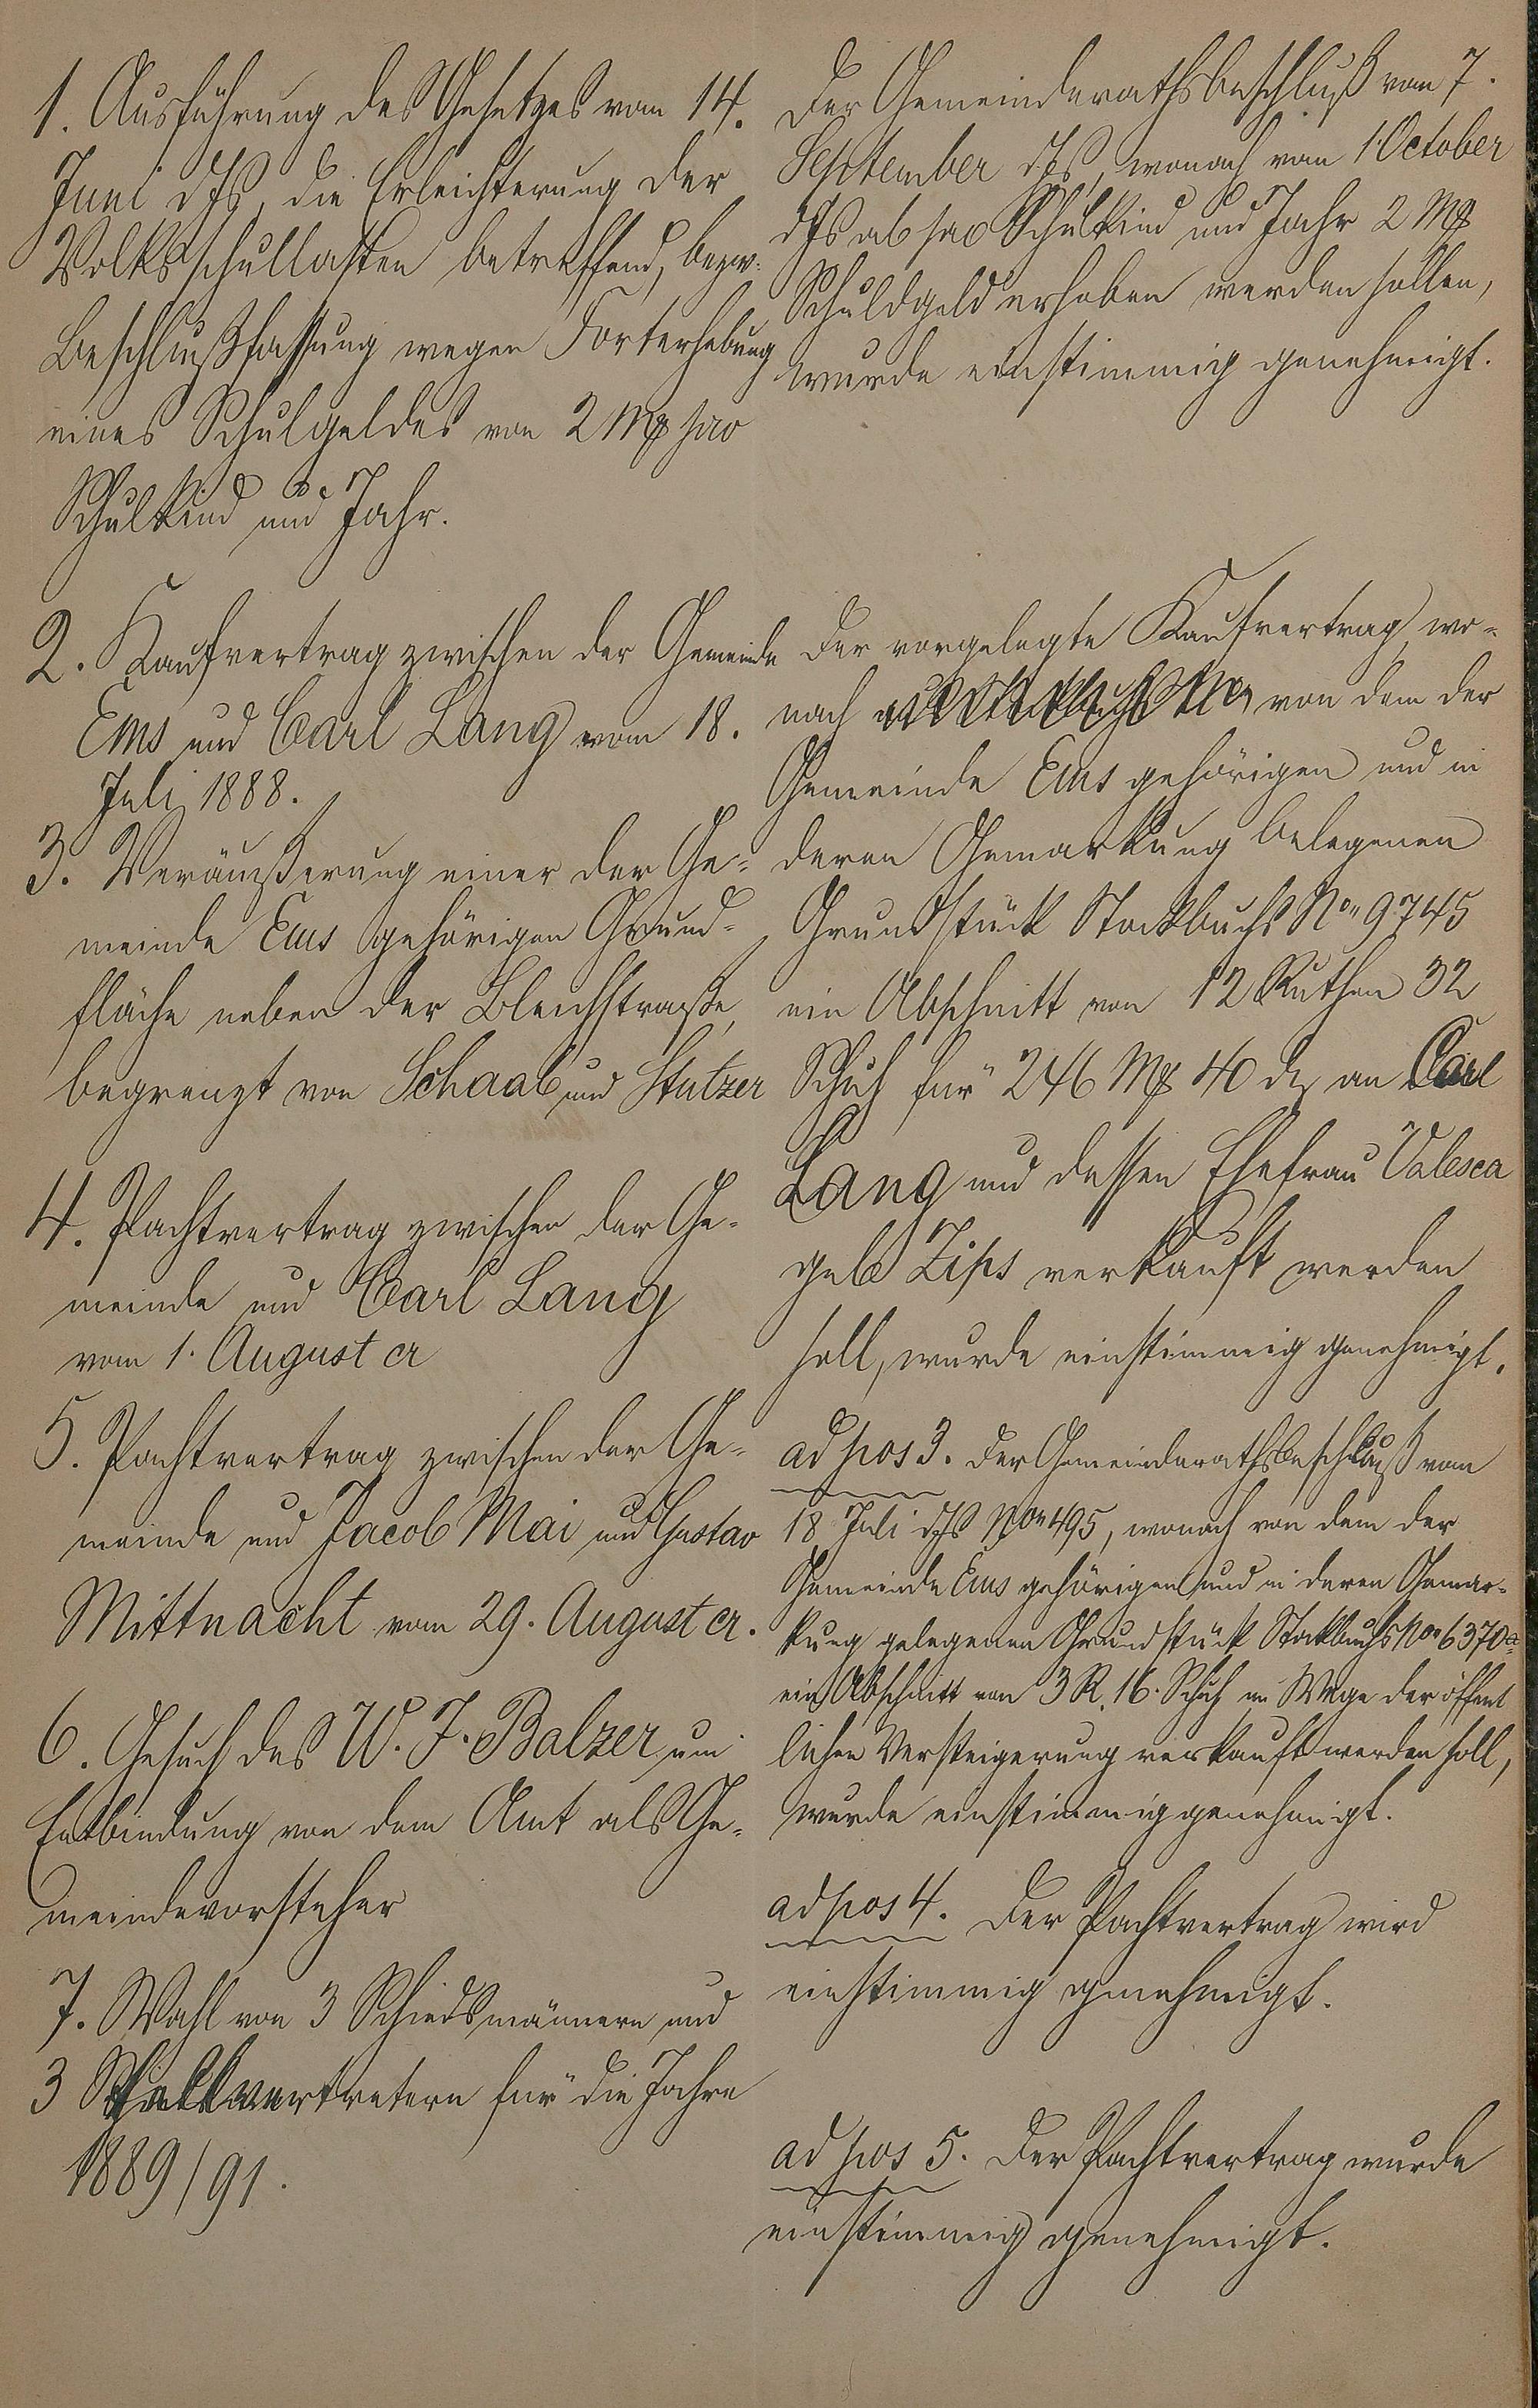 1. Ausführung des Gesetzes vom 14.
Juni d Js, die Erleichterung der
Volksschullasten betreffend, bezw.
Beschlußfassung wegen Forterhebung
eines Schulgeldes von 2 Mk pro
Schulkind und Jahr.
2. Kaufvertrag zwischen der Gemeinde
Ems und Carl Lang vom 18.
Juli 1888.
3. Veräußerung einer der Ge-
meinde Ems gehörigen Grund-
fläche neben der Bleichstraße,
begrenzt von Schaab und Stutzer
4. Pachtvertrag zwischen der Ge-
meinde und Carl Lang
vom 1. August cr
5. Pachtvertrag zwischen der Ge-
meinde und Jacob Mai und Gustav
Mittnacht vom 29. August cr.
6. Gesuch des W. J. Balzer um
Entbindung von dem Amt als Ge-
meindevorsteher
7. Wahl von 3 Schiedsmännern und
3 Stellvertretern für die Jahre
1889/91.
Der Gemeinderathsbeschluß vom 7.
September d Js, wonach vom 1 October
d Js ab pro Schulkind und Jahr 2 Mk
Schuldgeld erhoben werden sollen,
wurde einstimmig genehmigt.
Der vorgelegte Kaufvertrag, wo-
nach von dem der
Gemeinde Ems gehörigen und in
deren Gemarkung belegenen
Grundstück Stockbuchs No 9745
ein Abschnitt von 12 Ruthen 32
Schuh für 246 Mk 40 d an Carl
Lang und dessen Ehefrau Valesca
geb Zips verkauft werden
soll, wurde einstimmig genehmigt.
ad pos 3. Der Gemeinderathsbeschluß vom
18 Juli d Js No 495, wonach von dem der
Gemeinde Ems gehörigen und in deren Gemar-
kung gelegenen Grundstück Stockbuchs No 6370a
ein Abschnitt von 3 R. 16. Schuh im Wege der öffent
lichen Versteigerung verkauft werden soll,
wurde einstimmig genehmigt.
ad pos 4. Der Pachtvertrag wird
einstimmig genehmigt.
ad pos 5. Der Pachtvertrag wurde
einstimmig genehmigt.